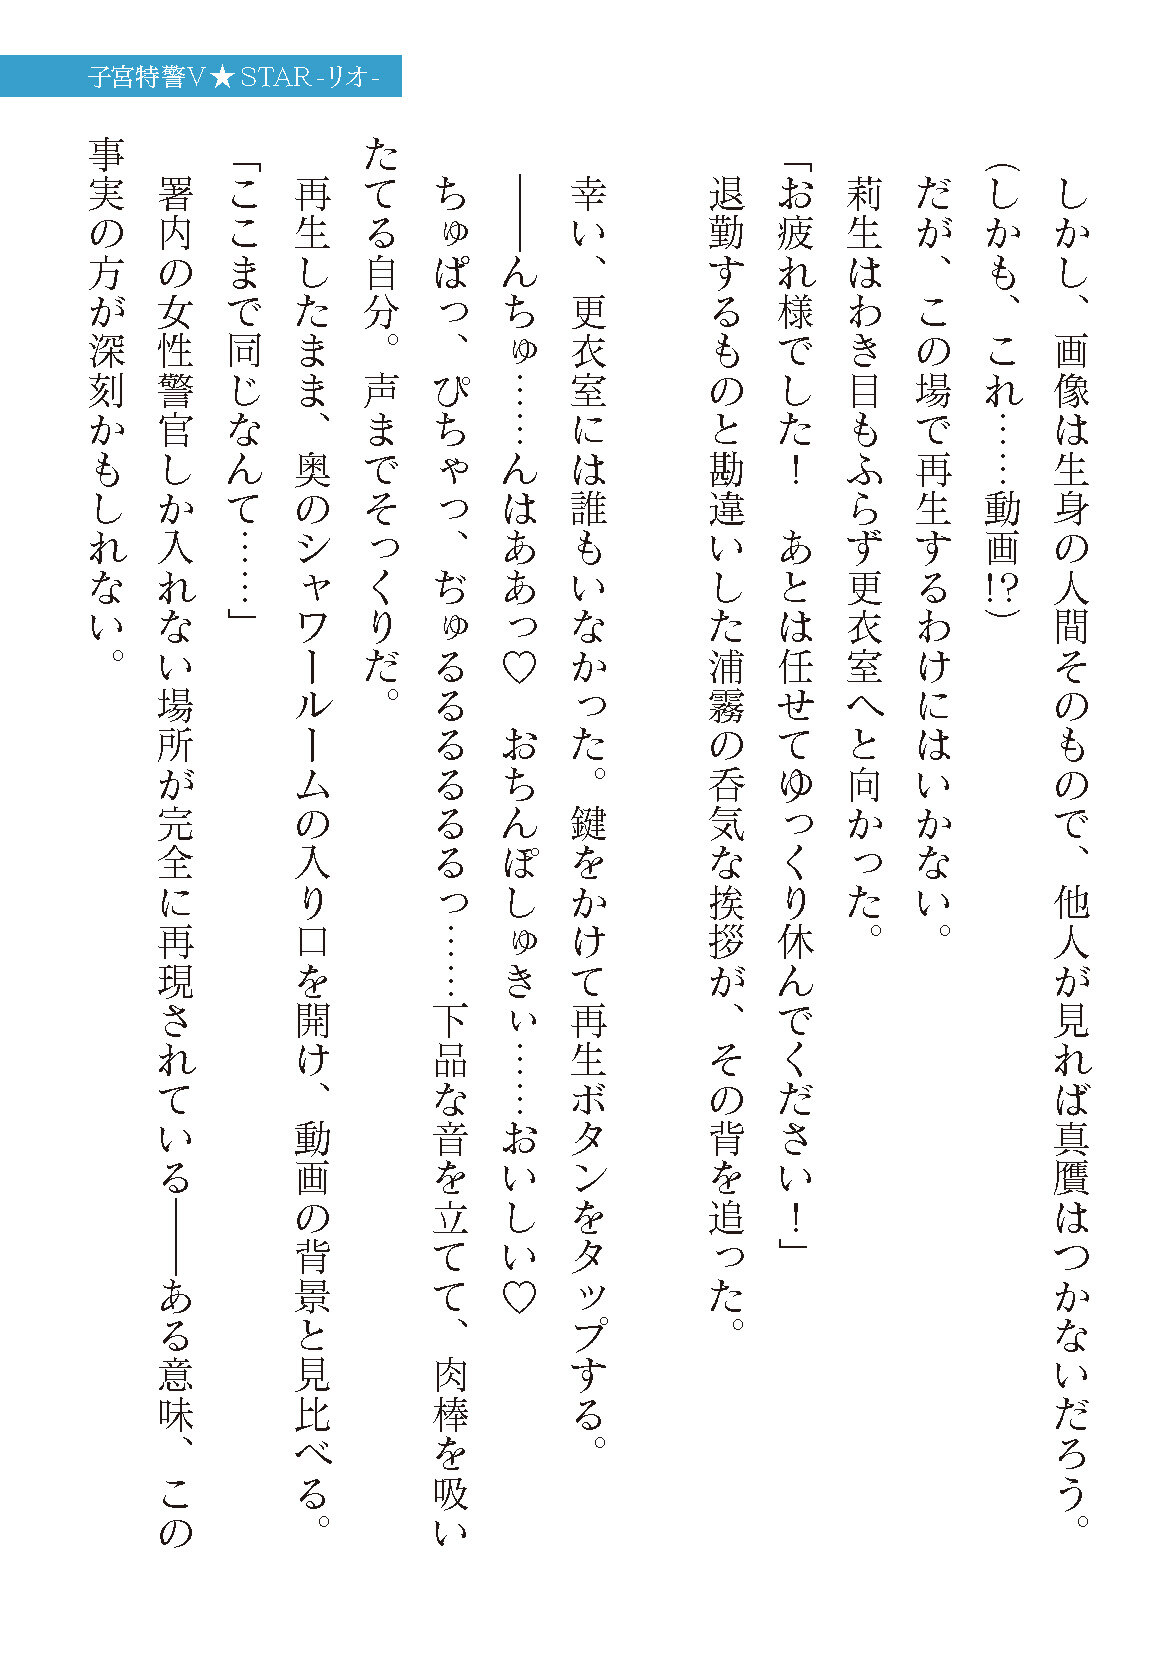 子宮特警V★STAR-リオ-
しかし、画像は生身の人間そのもので、他人が見れば真贋はつかないだろう。
（しかも、これ……動画!?）
だが、この場で再生するわけにはいかない。
莉生はわき目もふらず更衣室へと向かった。
「お疲れ様でした！　あとは任せてゆっくり休んでください！」
退勤するものと勘違いした浦霧の呑気な挨拶が、その背を追った。
幸い、更衣室には誰もいなかった。鍵をかけて再生ボタンをタップする。
――んちゅ……んはああっ♡　おちんぽしゅきぃ……おいしい♡
ちゅぱっ、ぴちゃっ、ぢゅるるるるるるっ……下品な音を立てて、肉棒を吸い
たてる自分。声までそっくりだ。
再生したまま、奥のシャワールームの入り口を開け、動画の背景と見比べる。
「ここまで同じなんて……」
署内の女性警官しか入れない場所が完全に再現されている――ある意味、この
事実の方が深刻かもしれない。